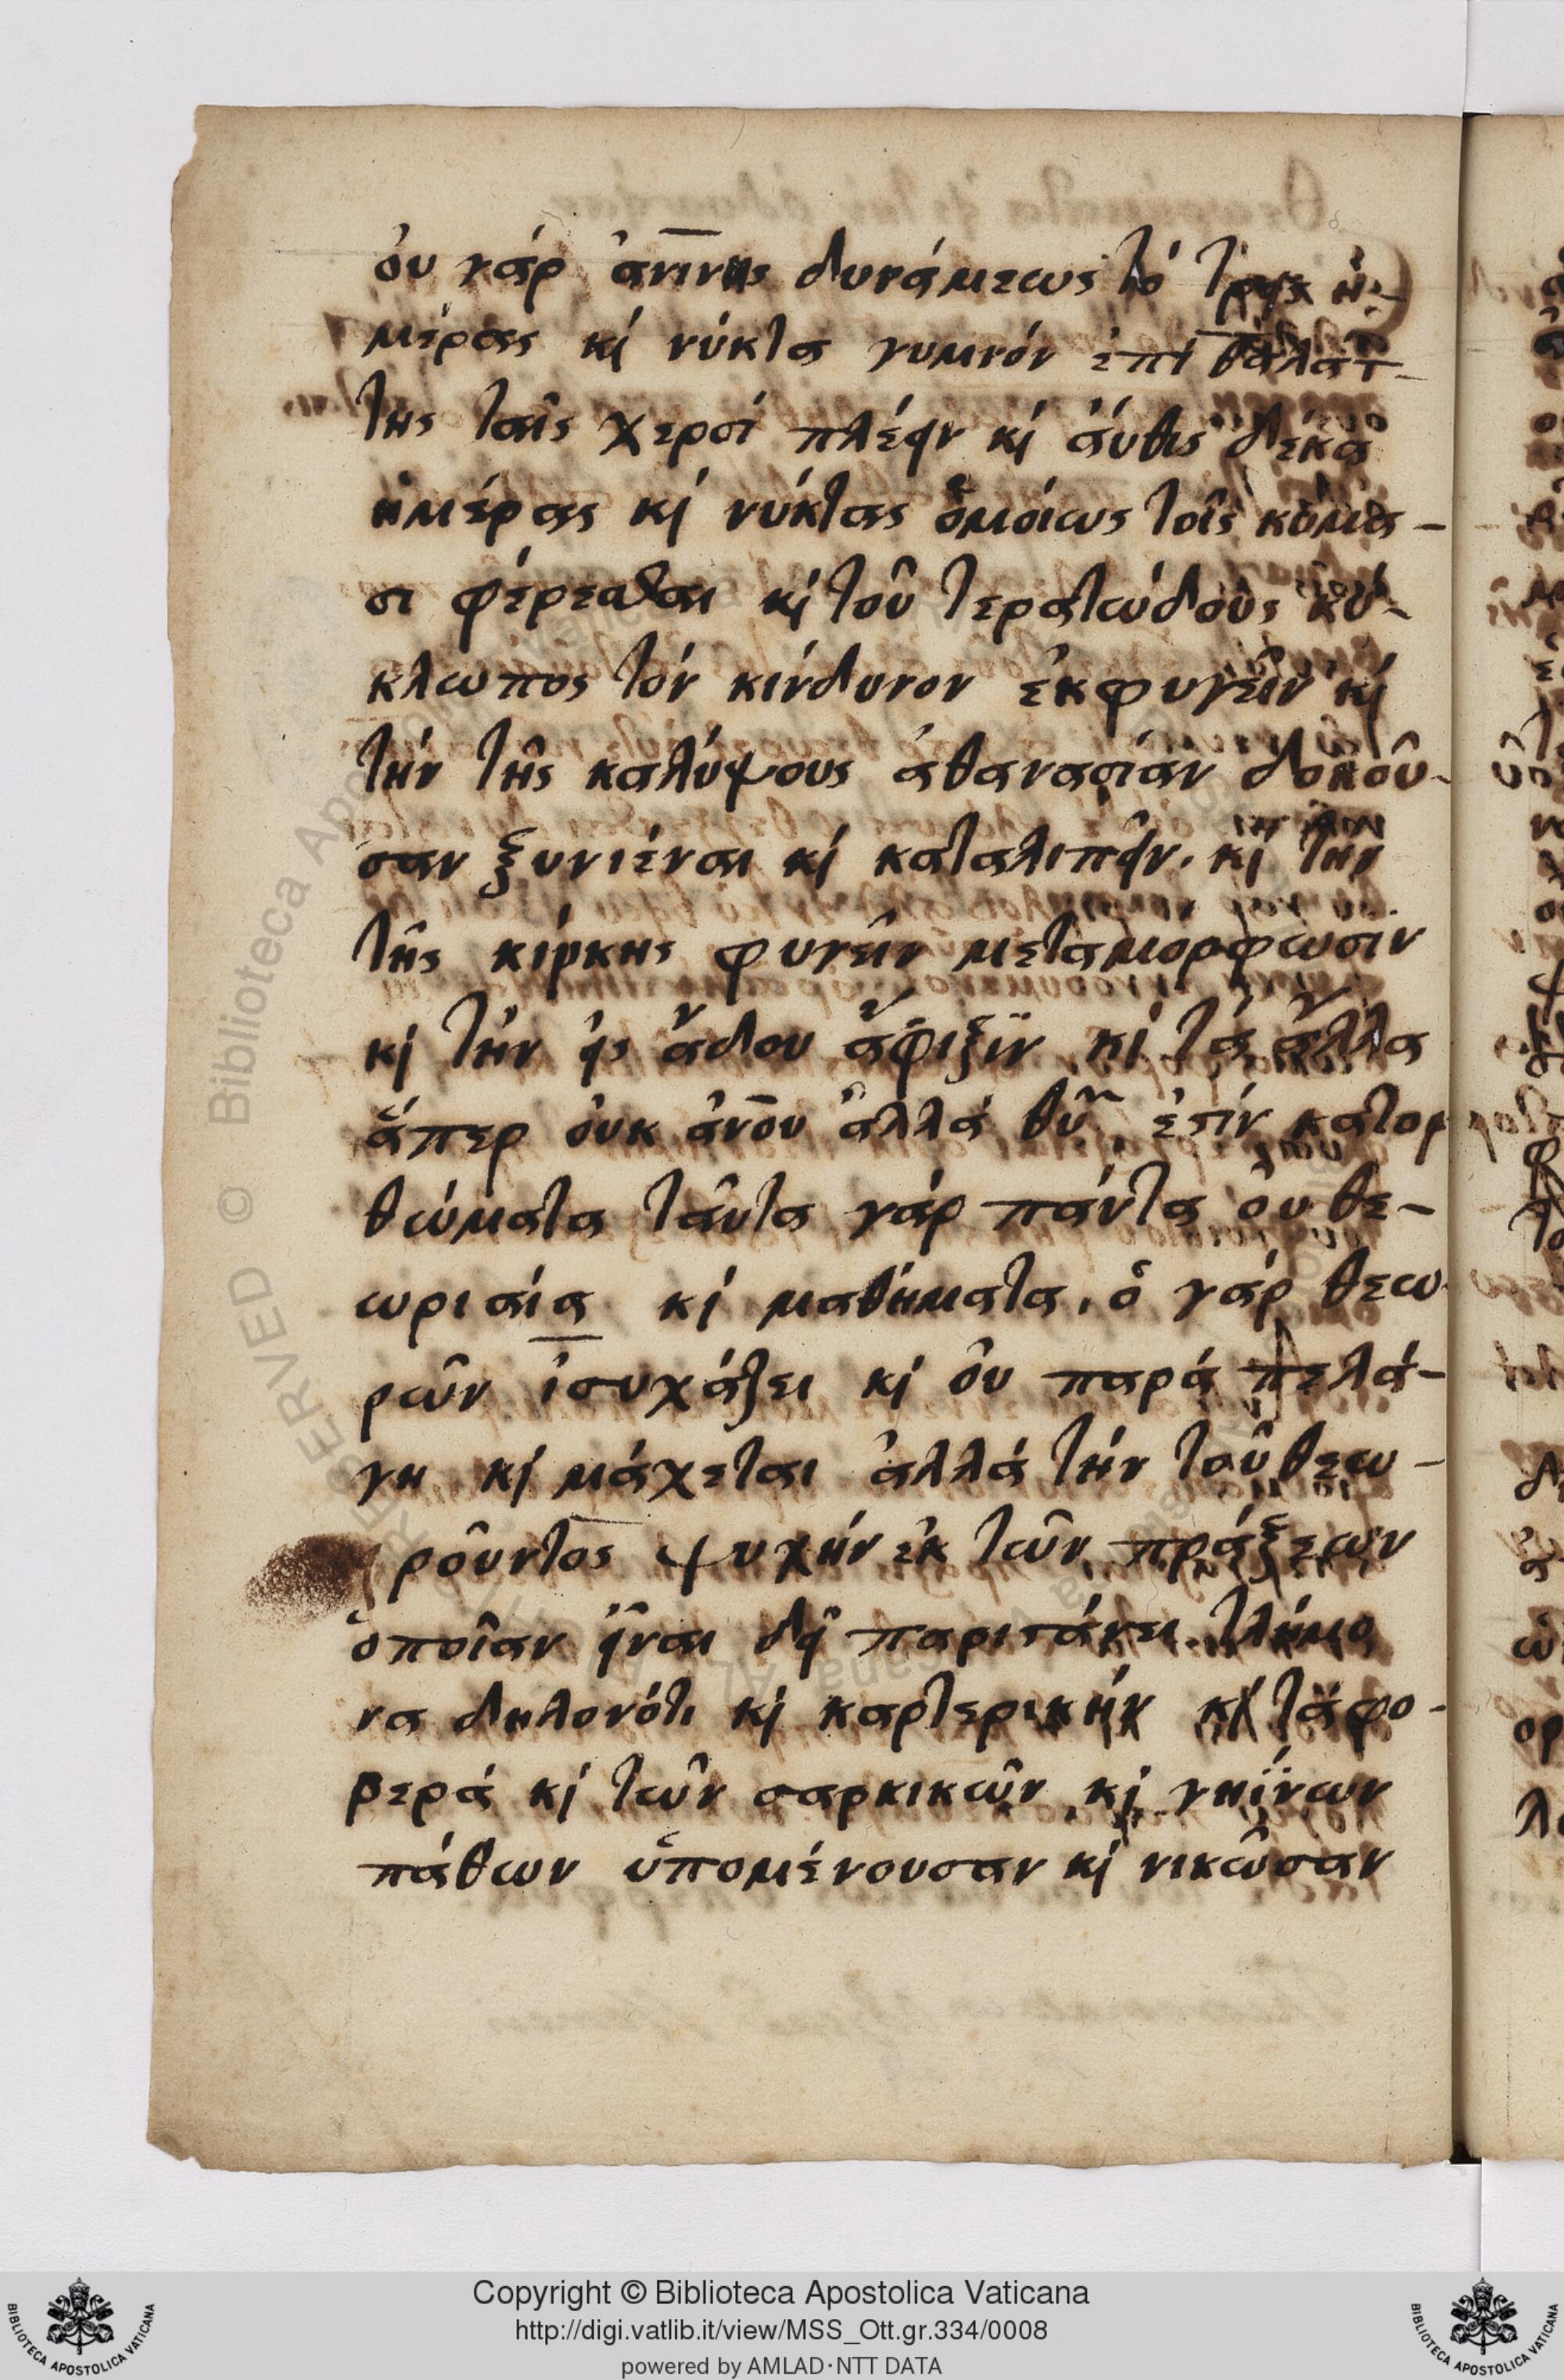 ὀυ γάρ ἀνῑνης δυνάμεως τό τρεῖς ἡ-
μέρας κὶ νύκτα γυμνόν ἐπί θαλατ-
της ταῖς χερσί πλέειν κὶ ἄυθις δέκα
ἡμέρας κὶ νύκτας ὁμοίως τοῖς κύμα-
σι φέρεσθαι κὶ τοῦ τερατώδους κύ-
κλωπος τόν κίνδυνον ἐκφυγεῖν κὶ
τήν τῆς καλύψους ἀθανασίαν δοκοῦ-
σαν ξυνιέναι κὶ καταλιπεῖν. κὶ τήν
τῆς κίρκης φυγεῖν μεταμόρφωσιν
κὶ τήν εἰς ἅδου ἄφιξϊν κὶ τά ἄλλα
ἅπερ ὀυκ ἀνο̅υ ἀλλά θῦ ἐστίν κατορ
θώματα ταῦτα γάρ πάντα ὀυ θε-
ωρισία κὶ μαθήματα, ὁ γάρ θεω-
ρῶν ἰσυχάζει κὶ ὀυ παρά πελά-
γη κὶ μάχεται ἀλλά τήν τοῦ θεω-
ροῦντος ψυχήν ἐκ τῶν πράξεων
ὁποῖαν εἶναι δεῖ παριστάνει τλήμο
να δηλονότι κὶ καρτερικήν κὶ τά φο-
βερά κὶ τῶν σαρκικῶν κὶ γηΐνων
πάθων ὑπομένουσαν κὶ νικῶσαν
RESERVED © Biblioteca Apostolica Vaticana
Copyright © Biblioteca Apostolica Vaticana
http://digi.vatlib.it/view/MSS_Ott.gr.334/0008
powered by AMLAD·NTT DATA
BIBLIOTECA APOSTOLICA VATICANA
BIBLIOTECA APOSTOLICA VATICANA